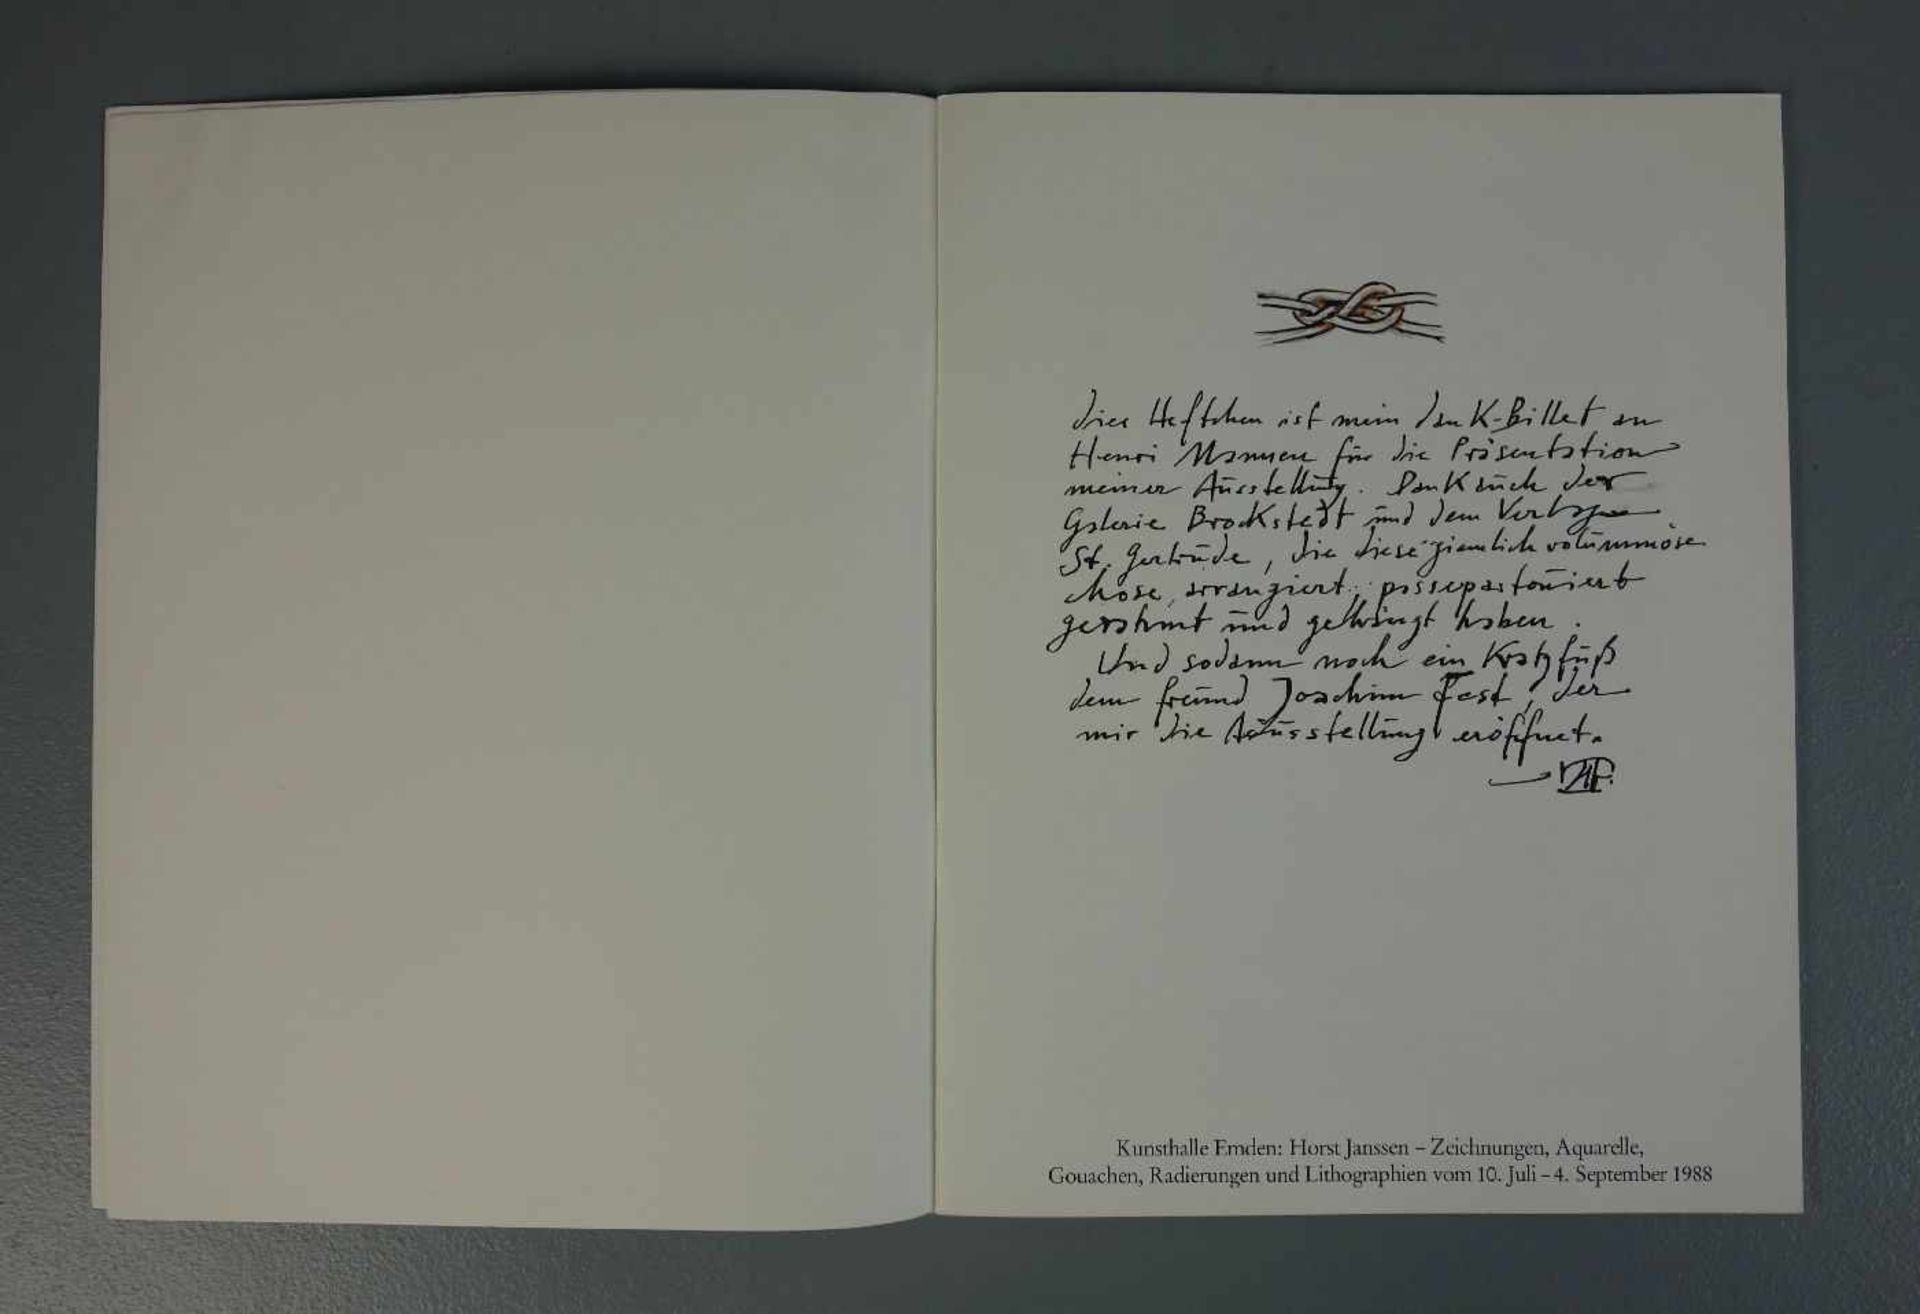 dies Heftchen ist mein dank-Billet an
Henri Nannen für die Präsentation
meiner Ausstellung. Dank auch der
Galerie Brockstedt und dem Verlag
St. Gertrude, die diese ziemlich voluminöse
chose, arrangiert, passepartouriert
gerahmt und gehängt haben.
Und sodann noch ein Kratzfuß
dem freund Joachim Fest, der
mir die Ausstellung eröffnet.
Kunsthalle Emden: Horst Janssen – Zeichnungen, Aquarelle,
Gouachen, Radierungen und Lithographien vom 10. Juli – 4. September 1988